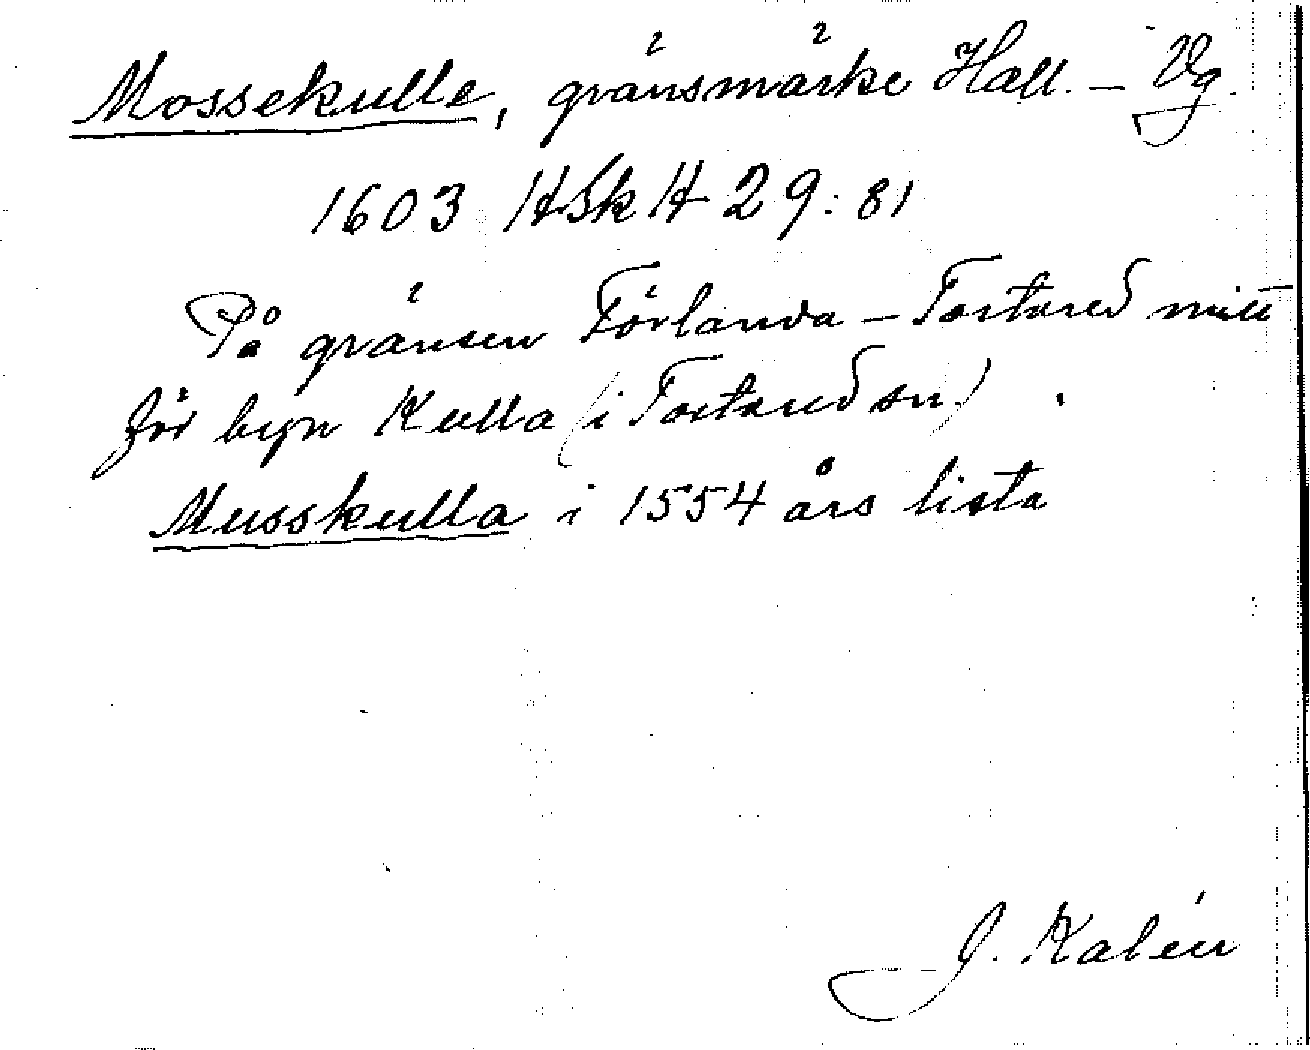 Mossekulle, gränsmärke Hall. – Vg.
1603 HSkH 29:81
På gränsen Förlanda – Tostared mitt
för byn Kulla (i Tostared sn)
Musskulla i 1554 års lista
J. Kalén